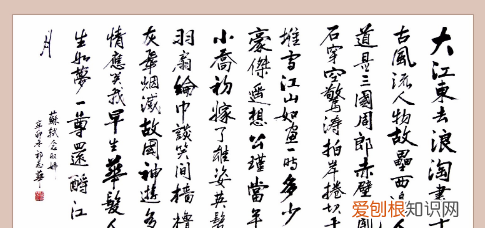 大江東去浪淘盡千
古風流人物故壘西邊人
道是三國周郎赤壁亂
石穿空驚濤拍岸捲起千
堆雪江山如畫一時多少
豪傑遙想公瑾當年
小喬初嫁了雄姿英發
羽扇綸巾談笑間檣櫓
灰飛煙滅故國神遊多
情應笑我早生華髮人
生如夢一尊還酹江
月
蘇軾念奴嬌
爱刨根知识网